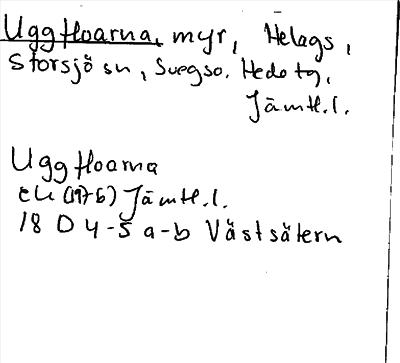 Uggfloarna, myr, Helags,
Storsjö sn, Svegs o. Hede tg,
Jämtl.l.
Uggfloarna
ek (1976) Jämtl.l.
18 D 4-5 a-b Västsätern